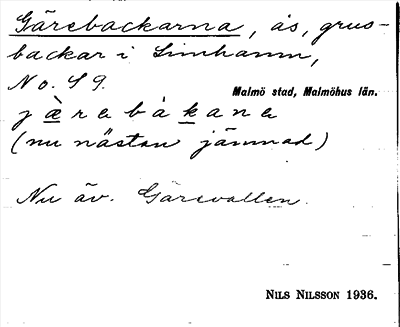 Gärebackarna, ås, grus-
backar i Limhamn,
No. 49.
Malmö stad, Malmöhus län.
jæ̀rebàkana
(nu nästan jämnad)
Nu äv. Gärevallen.
NILS NILSSON 1936.